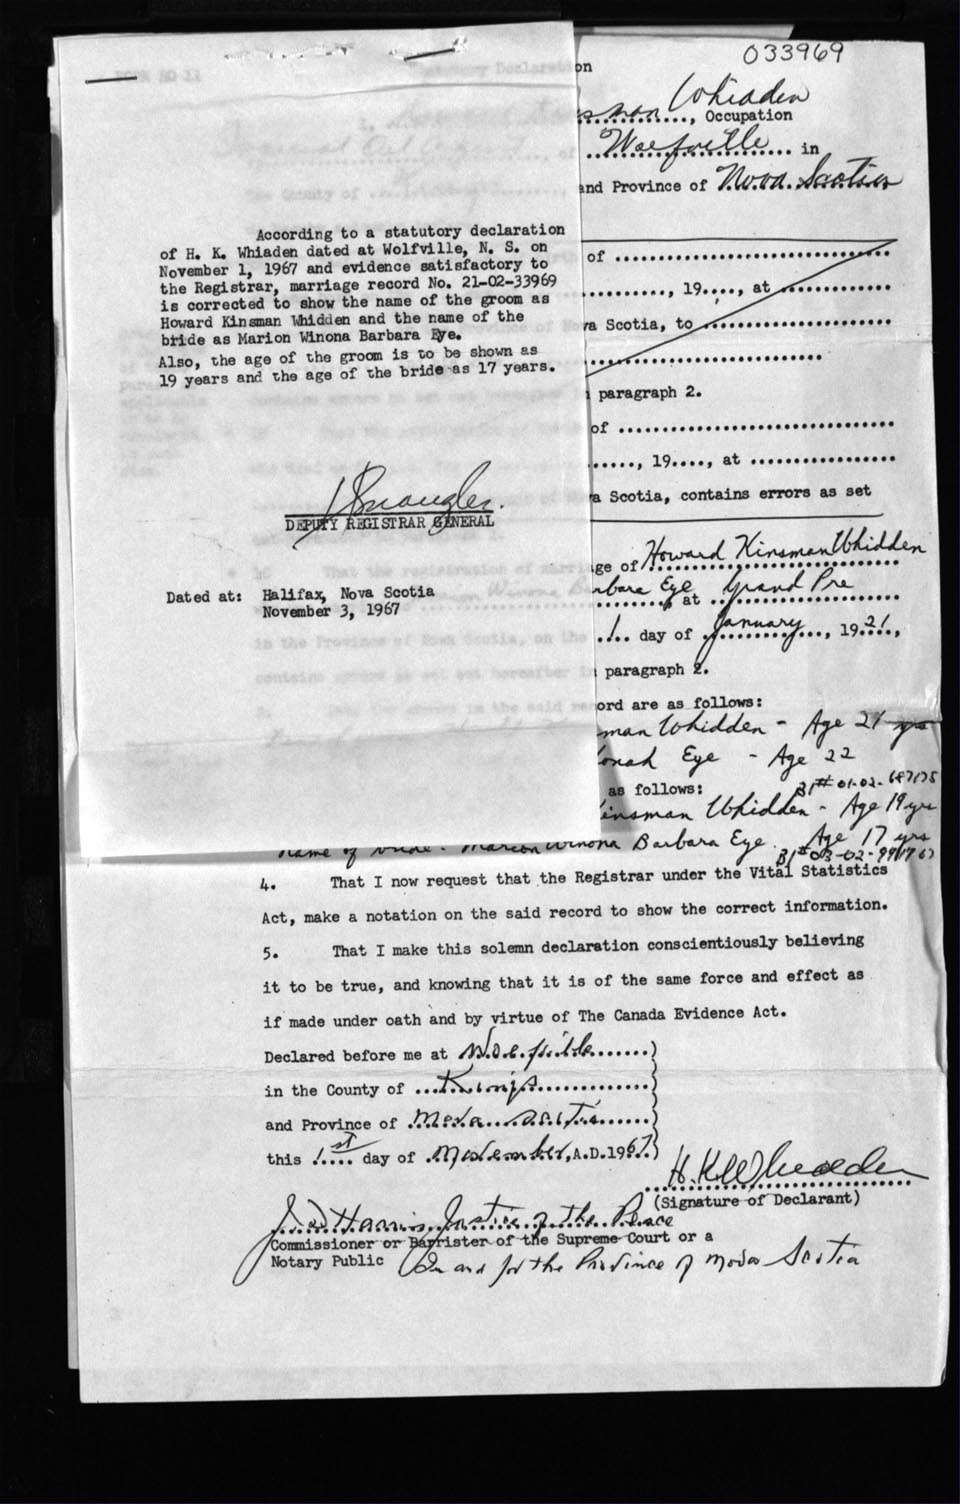 033969
According to a statutory declaration
of H. K. Whiaden dated at Wolfville, N. S. on
November 1, 1967 and evidence satisfactory to
the Registrar, marriage record No. 21-02-33969
is corrected to show the name of the groom as
Howard Kinsman Whidden and the name of the
bride as Marion Winona Barbara Eye.
Also, the age of the groom is to be shown as
19 years and the age of the bride as 17 years.
DEPUTY REGISTRAR GENERAL
Dated at: Halifax, Nova Scotia
November 3, 1967
on
Whidden
, Occupation
Wolfville in
and Province of Nova Scotia
of
, 19...., at
a Scotia, to
paragraph 2.
of
, 19...., at
a Scotia, contains errors as set
ge of Howard Kinsman Whidden
rbara Eye at Grand Pre
1 day of January, 1921,
paragraph 2.
ord are as follows:
man Whidden - Age 21 yrs
Eye - Age 22
as follows:
Kinsman Whidden - Age 19 yrs
Name of bride - Marion Winona Barbara Eye. Age 17 yrs
4. That I now request that the Registrar under the Vital Statistics
Act, make a notation on the said record to show the correct information.
5. That I make this solemn declaration conscientiously believing
it to be true, and knowing that it is of the same force and effect as
if made under oath and by virtue of The Canada Evidence Act.
Declared before me at Wolfville )
in the County of Kings )
and Province of Nova Scotia )
this 1st day of November, A.D. 1967 )
H. K. Whidden
(Signature of Declarant)
J. D. Harris Justice of the Peace
Commissioner or Barrister of the Supreme Court or a
Notary Public In and for the Province of Nova Scotia